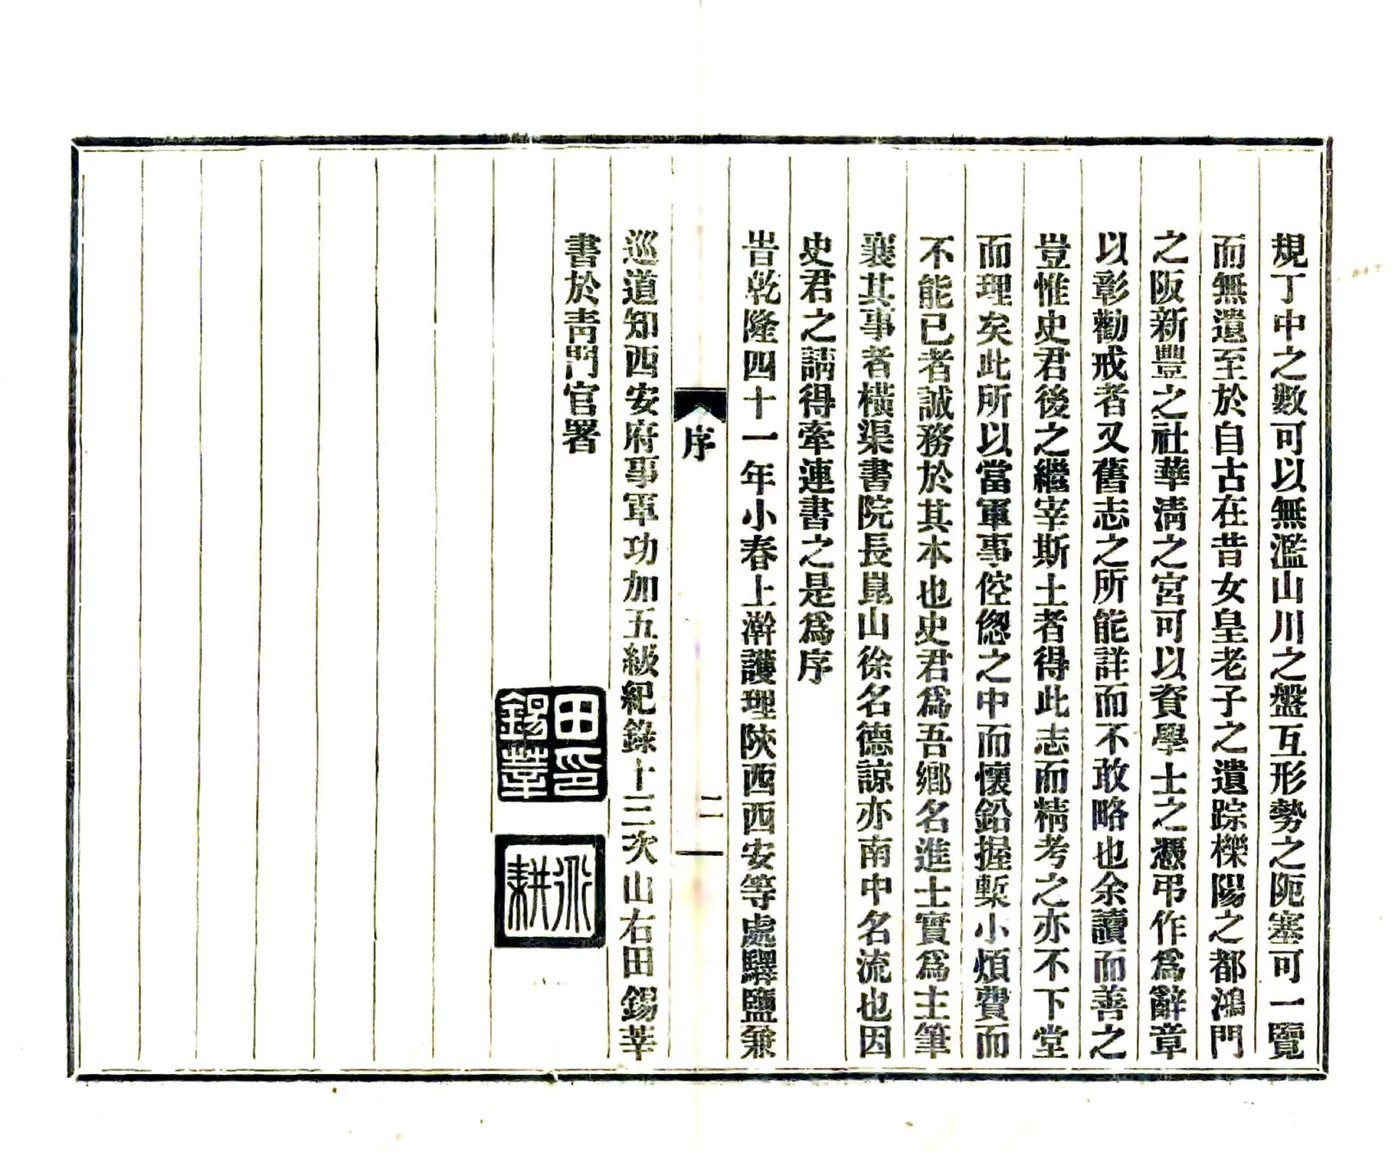 規丁中之數可以無濫山川之盤互形勢之阨塞可一覽
而無遺至於自古在昔女皇老子之遺踪櫟陽之都鴻門
之阪新豐之社華淸之宮可以資學士之憑弔作爲辭章
以彰勸戒者又舊志之所能詳而不敢略也余讀而善之
豈惟史君後之繼宰斯土者得此志而精考之亦不下堂
而理矣此所以當軍事倥傯之中而懷鉛握槧小煩費而
不能已者誠務於其本也史君爲吾鄉名進士實爲主筆
襄其事者橫渠書院長崑山徐名德諒亦南中名流也因
史君之請得牽連書之是爲序
旹乾隆四十一年小春上澣護理陝西西安等處驛鹽兼
序
二
巡道知西安府事軍功加五級紀錄十三次山右田錫莘
書於靑門官署
田印錫莘
耕